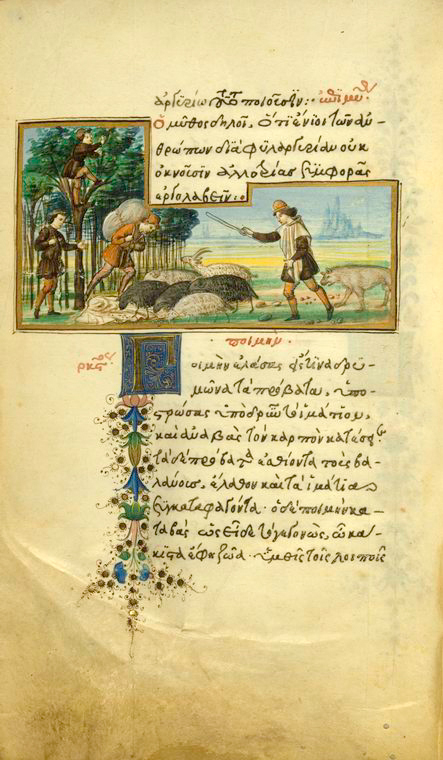 ἀργύριον τοῦτο ποιοῦσιν: ἐπιμύθ
Ὁ μῦθος δηλοῖ, ὅτι ἔνιοι τῶν ἀν-
θρώπων διὰ φιλαργυρίαν οὐκ
ὀκνοῦσιν ἀλλοτρίαις συμφοραῖς
ποιμήν
Ποιμὴν ἐλάσας εἴς τινα δρυ-
μῶνα τὰ πρόβατα, ὑπο-
στρώσας ὑπὸ δρῦν ἱμάτιον,
καὶ ἀναβὰς τὸν καρπὸν κατέσει
τὰ δὲ πρόβατα ἐσθίοντα τοὺς βα-
λάνους, ἔλαθον καὶ τὰ ἱμάτια
συγκαταφαγόντα. ὁ δὲ ποιμὴν κα-
ταβὰς ὡς εἶδε τὸ γεγονὸς, ὦ κά-
κιστα ἔφη ζῶα ὑμεῖς τοῖς λοιποῖς